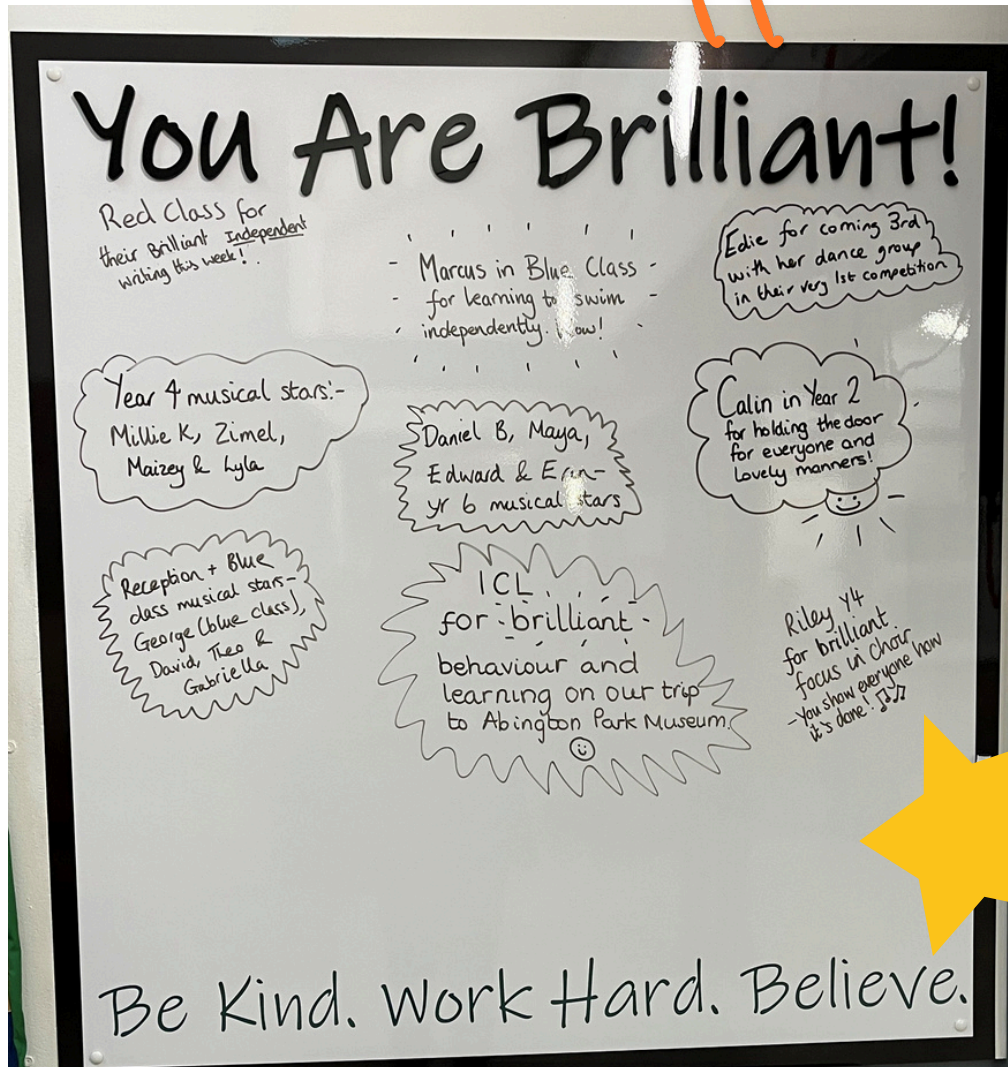 You Are Brilliant!
Red Class for
their Brilliant Independent
writing this week!
Marcus in Blue Class
for learning to swim
independently. Wow!
Edie for coming 3rd
with her dance group
in their very 1st competition
Year 4 musical stars:-
Millie K, Zimel,
Maizey & Lyla
Daniel B, Maya,
Edward & Erin-
yr 6 musical stars
Calin in Year 2
for holding the door
for everyone and
Lovely manners!
Reception + Blue
class musical stars-
George (blue class),
David, Theo &
Gabriella
ICL
for brilliant
behaviour and
learning on our trip
to Abington Park Museum
Riley Y4
for brilliant
focus in choir
-You show everyone how
it's done!
Be Kind. Work Hard. Believe.